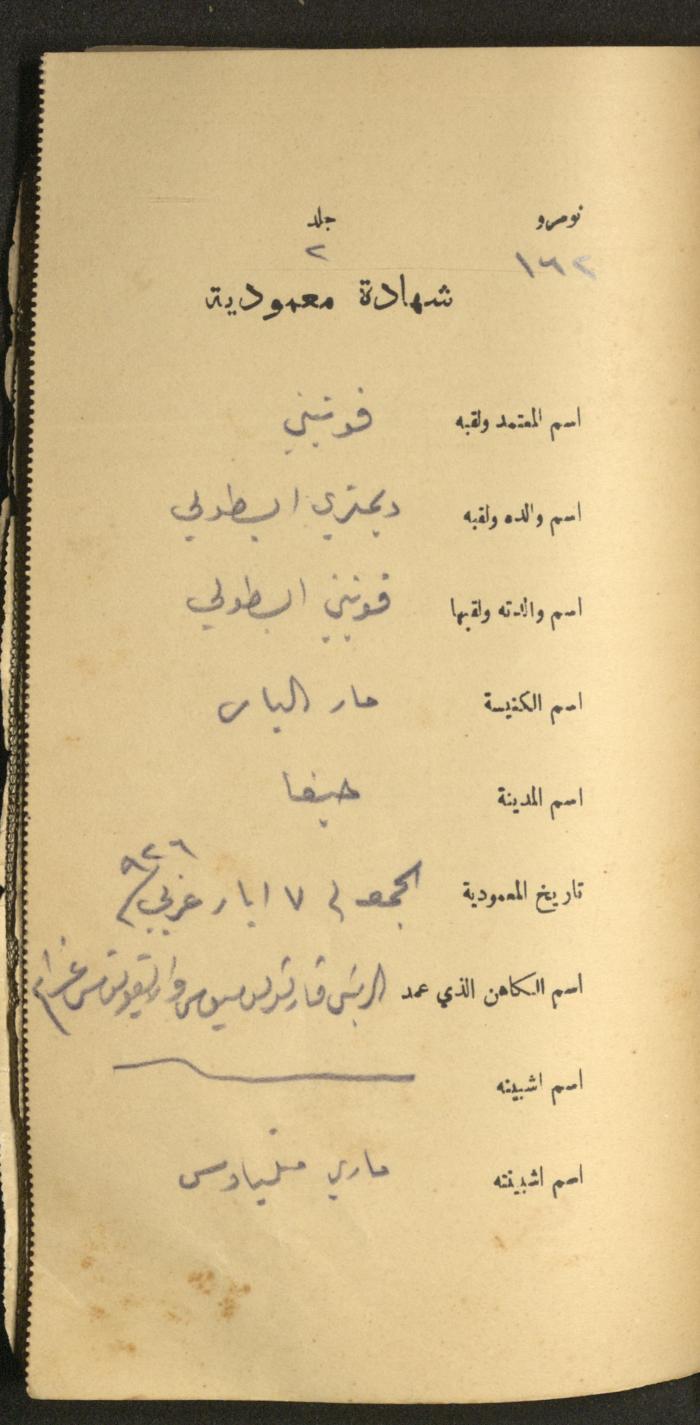 نومرو جلد
١٦٢ ٢
شهادة معمودية
اسم المعتمد ولقبه فوتيني
اسم والده ولقبه ديمتري
اسم والدته ولقبها فوتيني
اسم الكنيسة مار الياس
اسم المدينة حيفا
تاريخ المعمودية الجمعه في ٧ ايار غربي ٩٢٦
اسم الكاهن الذي عمد
اسم اشبينه
اسم اشبينته ماري